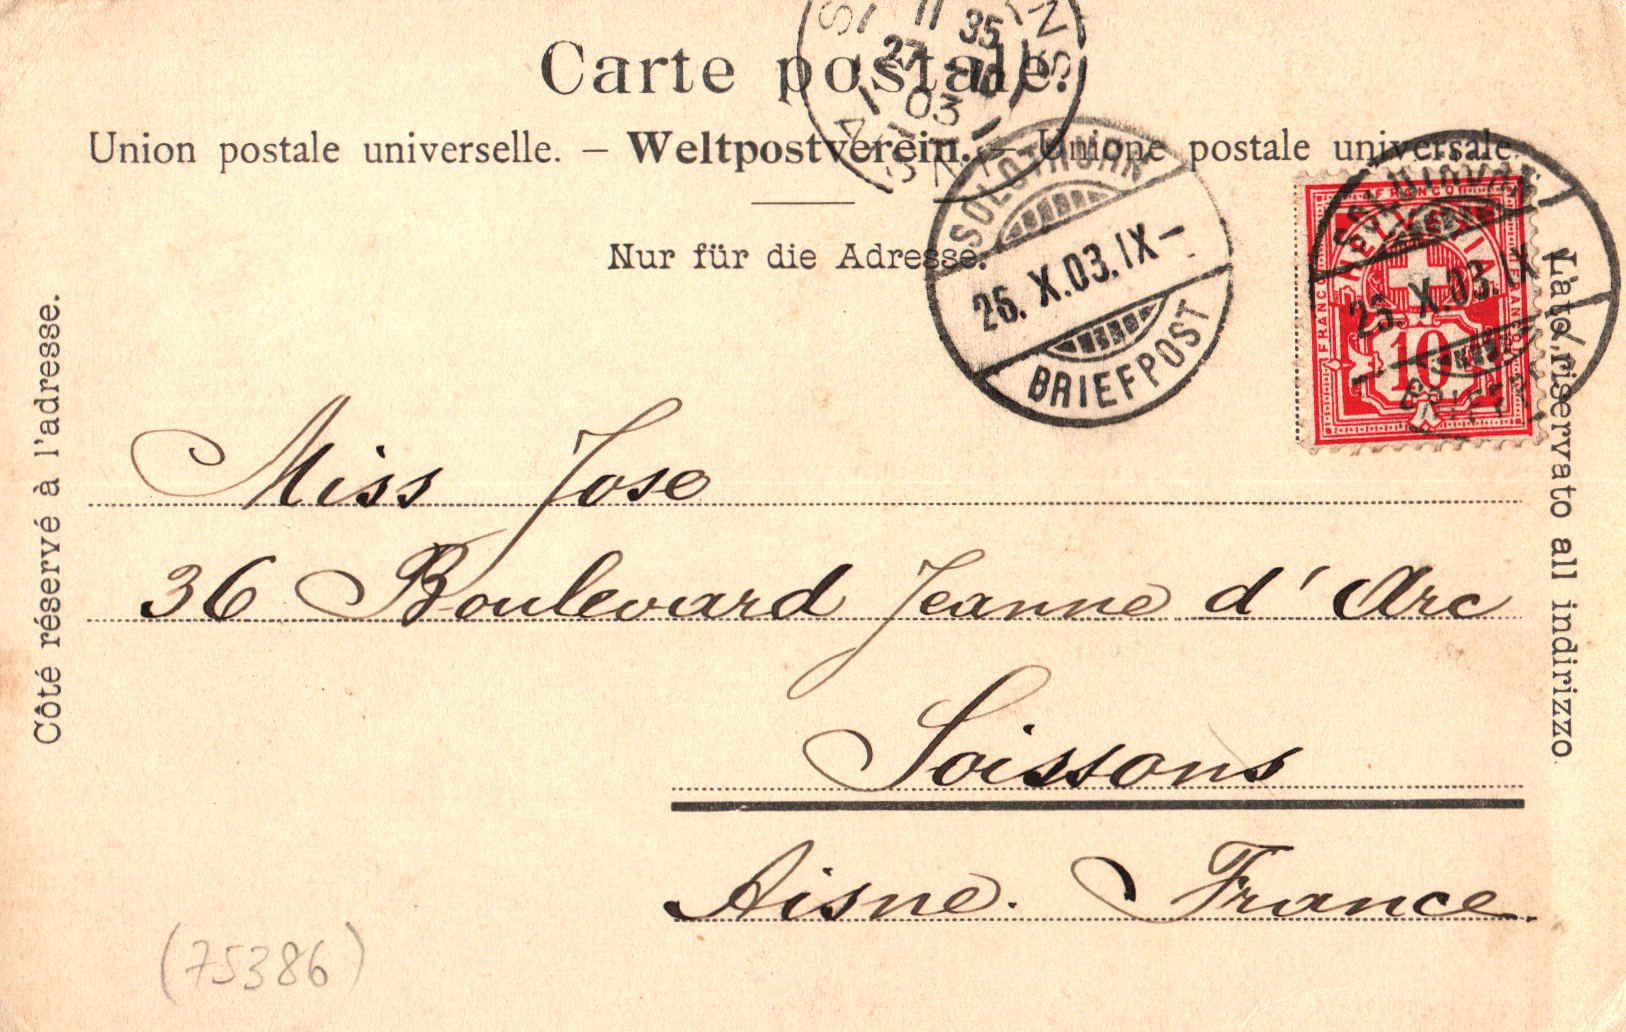 Carte postale.
Union postale universelle. – Weltpostverein. – Unione postale universale.
Nur für die Adresse.
Côté réservé à l'adresse.
L'ato riservato all indirizzo.
SOISSONS
AISNE
11 35
27 10
03
SOLOTHURN
26. X.03.IX–
BRIEFPOST
SOLOTHURN
26. X.03.IX
FRANCO
FRANCO
FRANCO
HELVETIA
10
Miss Jose
36 Boulevard Jeanne d'Arc
Soissons
Aisne. France.
(75386)